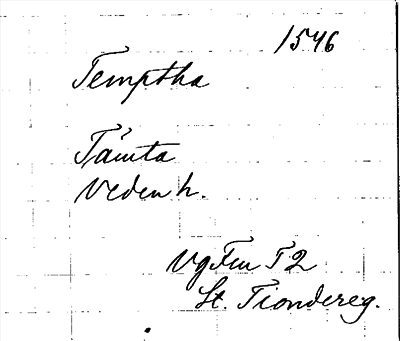 1546
Temptha
Tämta
Veden h.
Vg Fm T 2
St. Tiondereg.